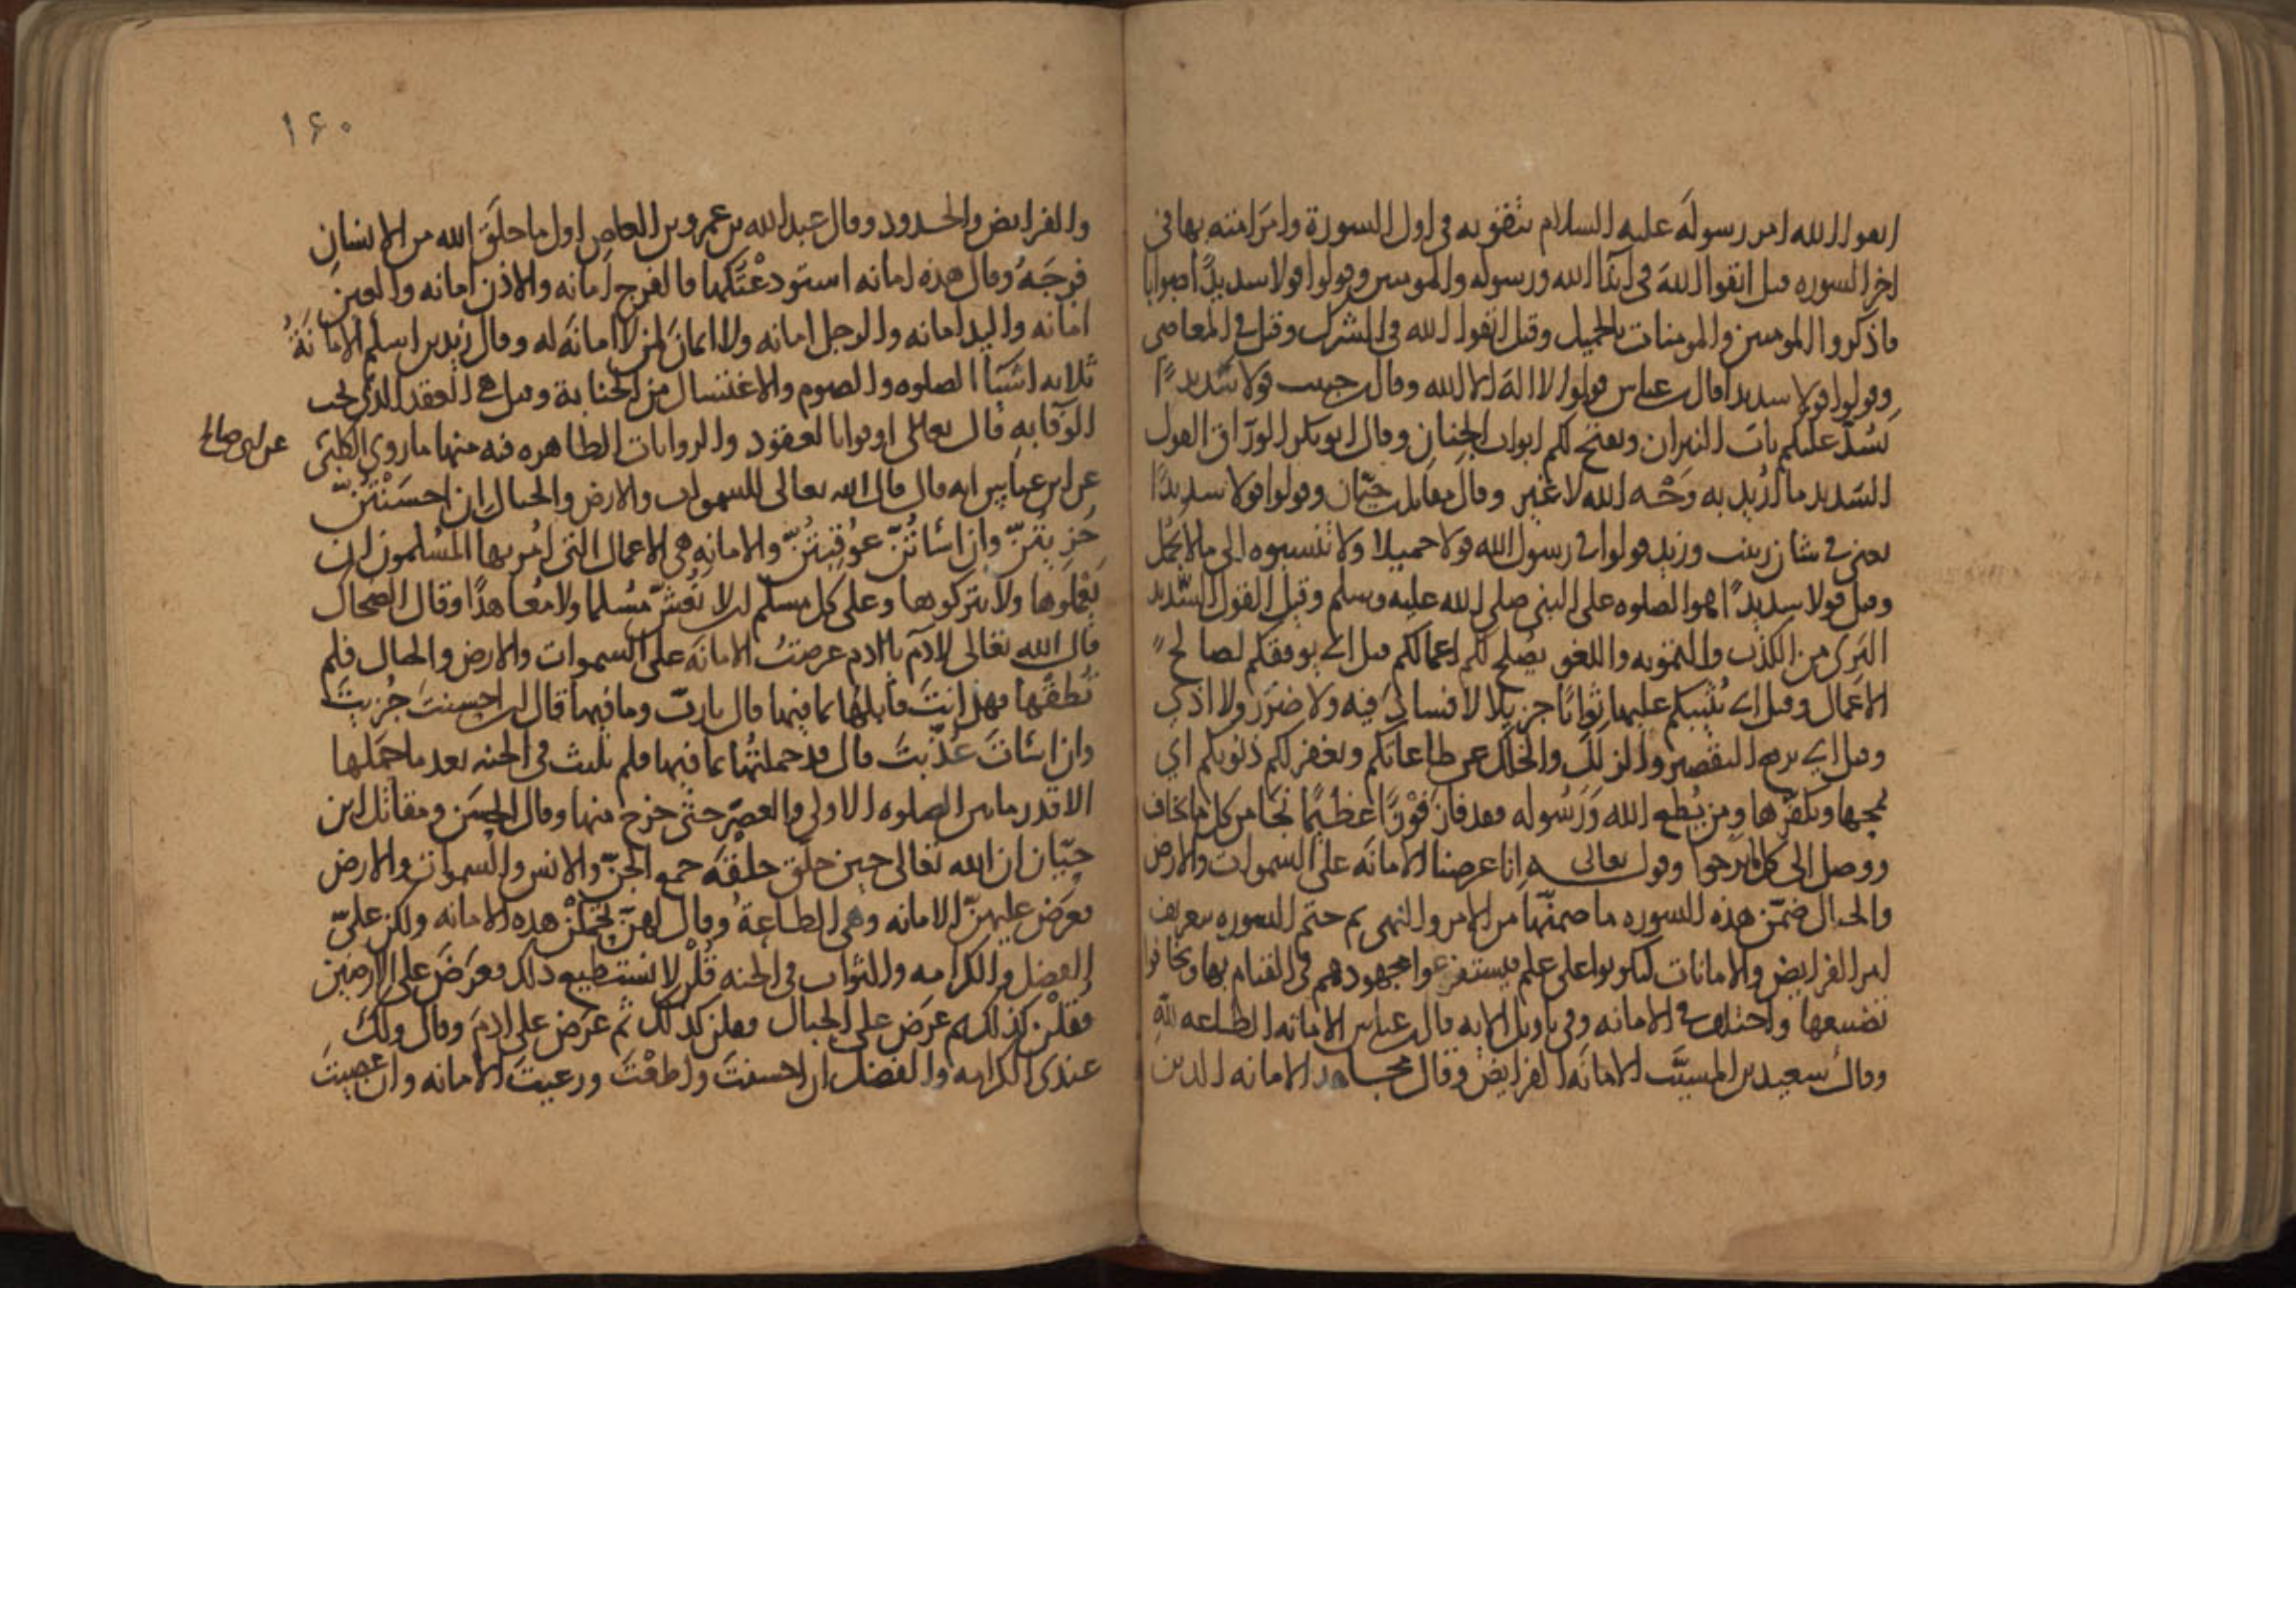 اتقوا الله امر رسوله عليه السلام بتقويه في اول السورة وامر امته بها في
اخر السوره قيل اتقوا الله في ايذا الله ورسوله والمومنين وقولوا قولا سديدًا اصوابا
فاذكروا المومنين والمومنات بالجميل وقيل اتقوا الله في الشرك وقيل في المعاصي
وقولوا قولا سديدا قال ابن عباس قولوا لا اله الا الله وقال قولا سديدًا
يسُدّ عليكم باب النيران ويفتح لكم ابواب الجنان وقال ابو بكر الورّاق القول
السّديد ما اريد به وَجْه الله لا غير وقال مقاتل بن حيّان وقولوا قولا سديدًا
يعني في شان زينب وزيد قولوا في رسول الله قولا جميلا ولا تنسبوه الى ما لا يجمُل
وقيل قولا سديدًا الصلوه على النبي صلى الله عليه وسلم وقيل القول السّديد
البَرِى من الكذب والتمويه واللغو يصلح لكم اعمالكم قيل اي يوفقكم لصالح
الاعمال وقيل اي يُثيبكم عليها ثوابًا جزيلا لا فساد فيه ولا ضرَر ولا اذي
وقيل اي يرفع التقصير والزلل والخلل عن طاعاتكم ويغفر لكم ذنوبكم اي
يمحها ويكفّرها ومن يُطع الله وَرَسُوله فقد فاز فَوْزًا عَظيمًا نجَا من كل ما يخاف
ووصل الى كل ما يرجوا وقول تعالى انا عرضنا الامانَه على السموات والارض
والجبال ضمّن هذه السوره ما ضمنّها من الامر والنهى ثم ختم السوره بتعريف
امر الفرايض والامانات ليكونوا على علم فيستفرغوا مجهودهم في القيام بها ويخافوا
تضييعها واختلف في الامانه وفي تاويل الايه قال ابن عباس الامانه الطاعه لله
وقال سعيد بن المسيّب الامانه الفرايض وقال مجاهد الامانه الدين
١٤٠
والفرايض والحدود وقال عبد الله بن عمرو بن العاص اول ما خلَق الله من الانسان
فرجَهُ وقال هذه امانه استودعْتكها فالفرج امانه والاذن امانه والعين
امانه واليد امانه والرجل امانه ولا ايمانَ لمن لا امانَه له وقال زيد بن اسلم الامانَةُ
ثلاثه اشيَآ الصلوه والصوم والاغتسال من الجنابة وقيل هي العقد الذي يجب
الوَفا به قال تعالى اوفوا بالعقود والروايات الظاهره فيه منها ما روي الكلبيّ
عن ابي صالح
عن ابن عباس انه قال قال الله تعالى للسموات والارض والجبال ان احسَنْتُنّ
جُزِيتُنّ وان اسَأتُنّ عوُقبتُنّ والامانه هي الاعمال التي امُر بها المسُلمون ان
يَعْمَلوها ولا يتركوها وعلى كل مسلم ان لا يَغُشّ مسُلما ولا معُاهدًا وقال الضحاك
قال الله تعالى لادَم يا ادم عرضتُ الامانَه على السموات والارض والجبال فلم
تُطقها فهل انتَ قابلها بما فيها قال يا ربّ وما فيها قال ان احسنتَ جُزيتَ
وان اسَاتَ عُذّبتَ قال قد حملتُها بما فيها فلم يلبث في الجنه بعد ما حمَلها
الا قدر ما بين الصلوه الاولى والعصْر حتى خرج منها وقال الحسَن ومقاتل ابن
حيّان ان الله تعالى حين خلَق خلقَه جمع الجنّ والانس والسموات والارض
فعرَض عليهنّ الامانه وهي الطاعةُ وقال لهنّ تحملْن هذه الامانه ولكنّ عليّ
الفضل والكرامه والثواب في الجنه قُلْن لا نستطيع ذلك فعرَضَ على الارضين
فقلْن كذلك ثم عرَض على الجبال فقلن كذلك ثم عرَض على ادمَ وقال ولكَ
عندى الكرامه والفضل ان احسنتَ واطعْتَ ورعيتَ الامانه وان عصيتَ